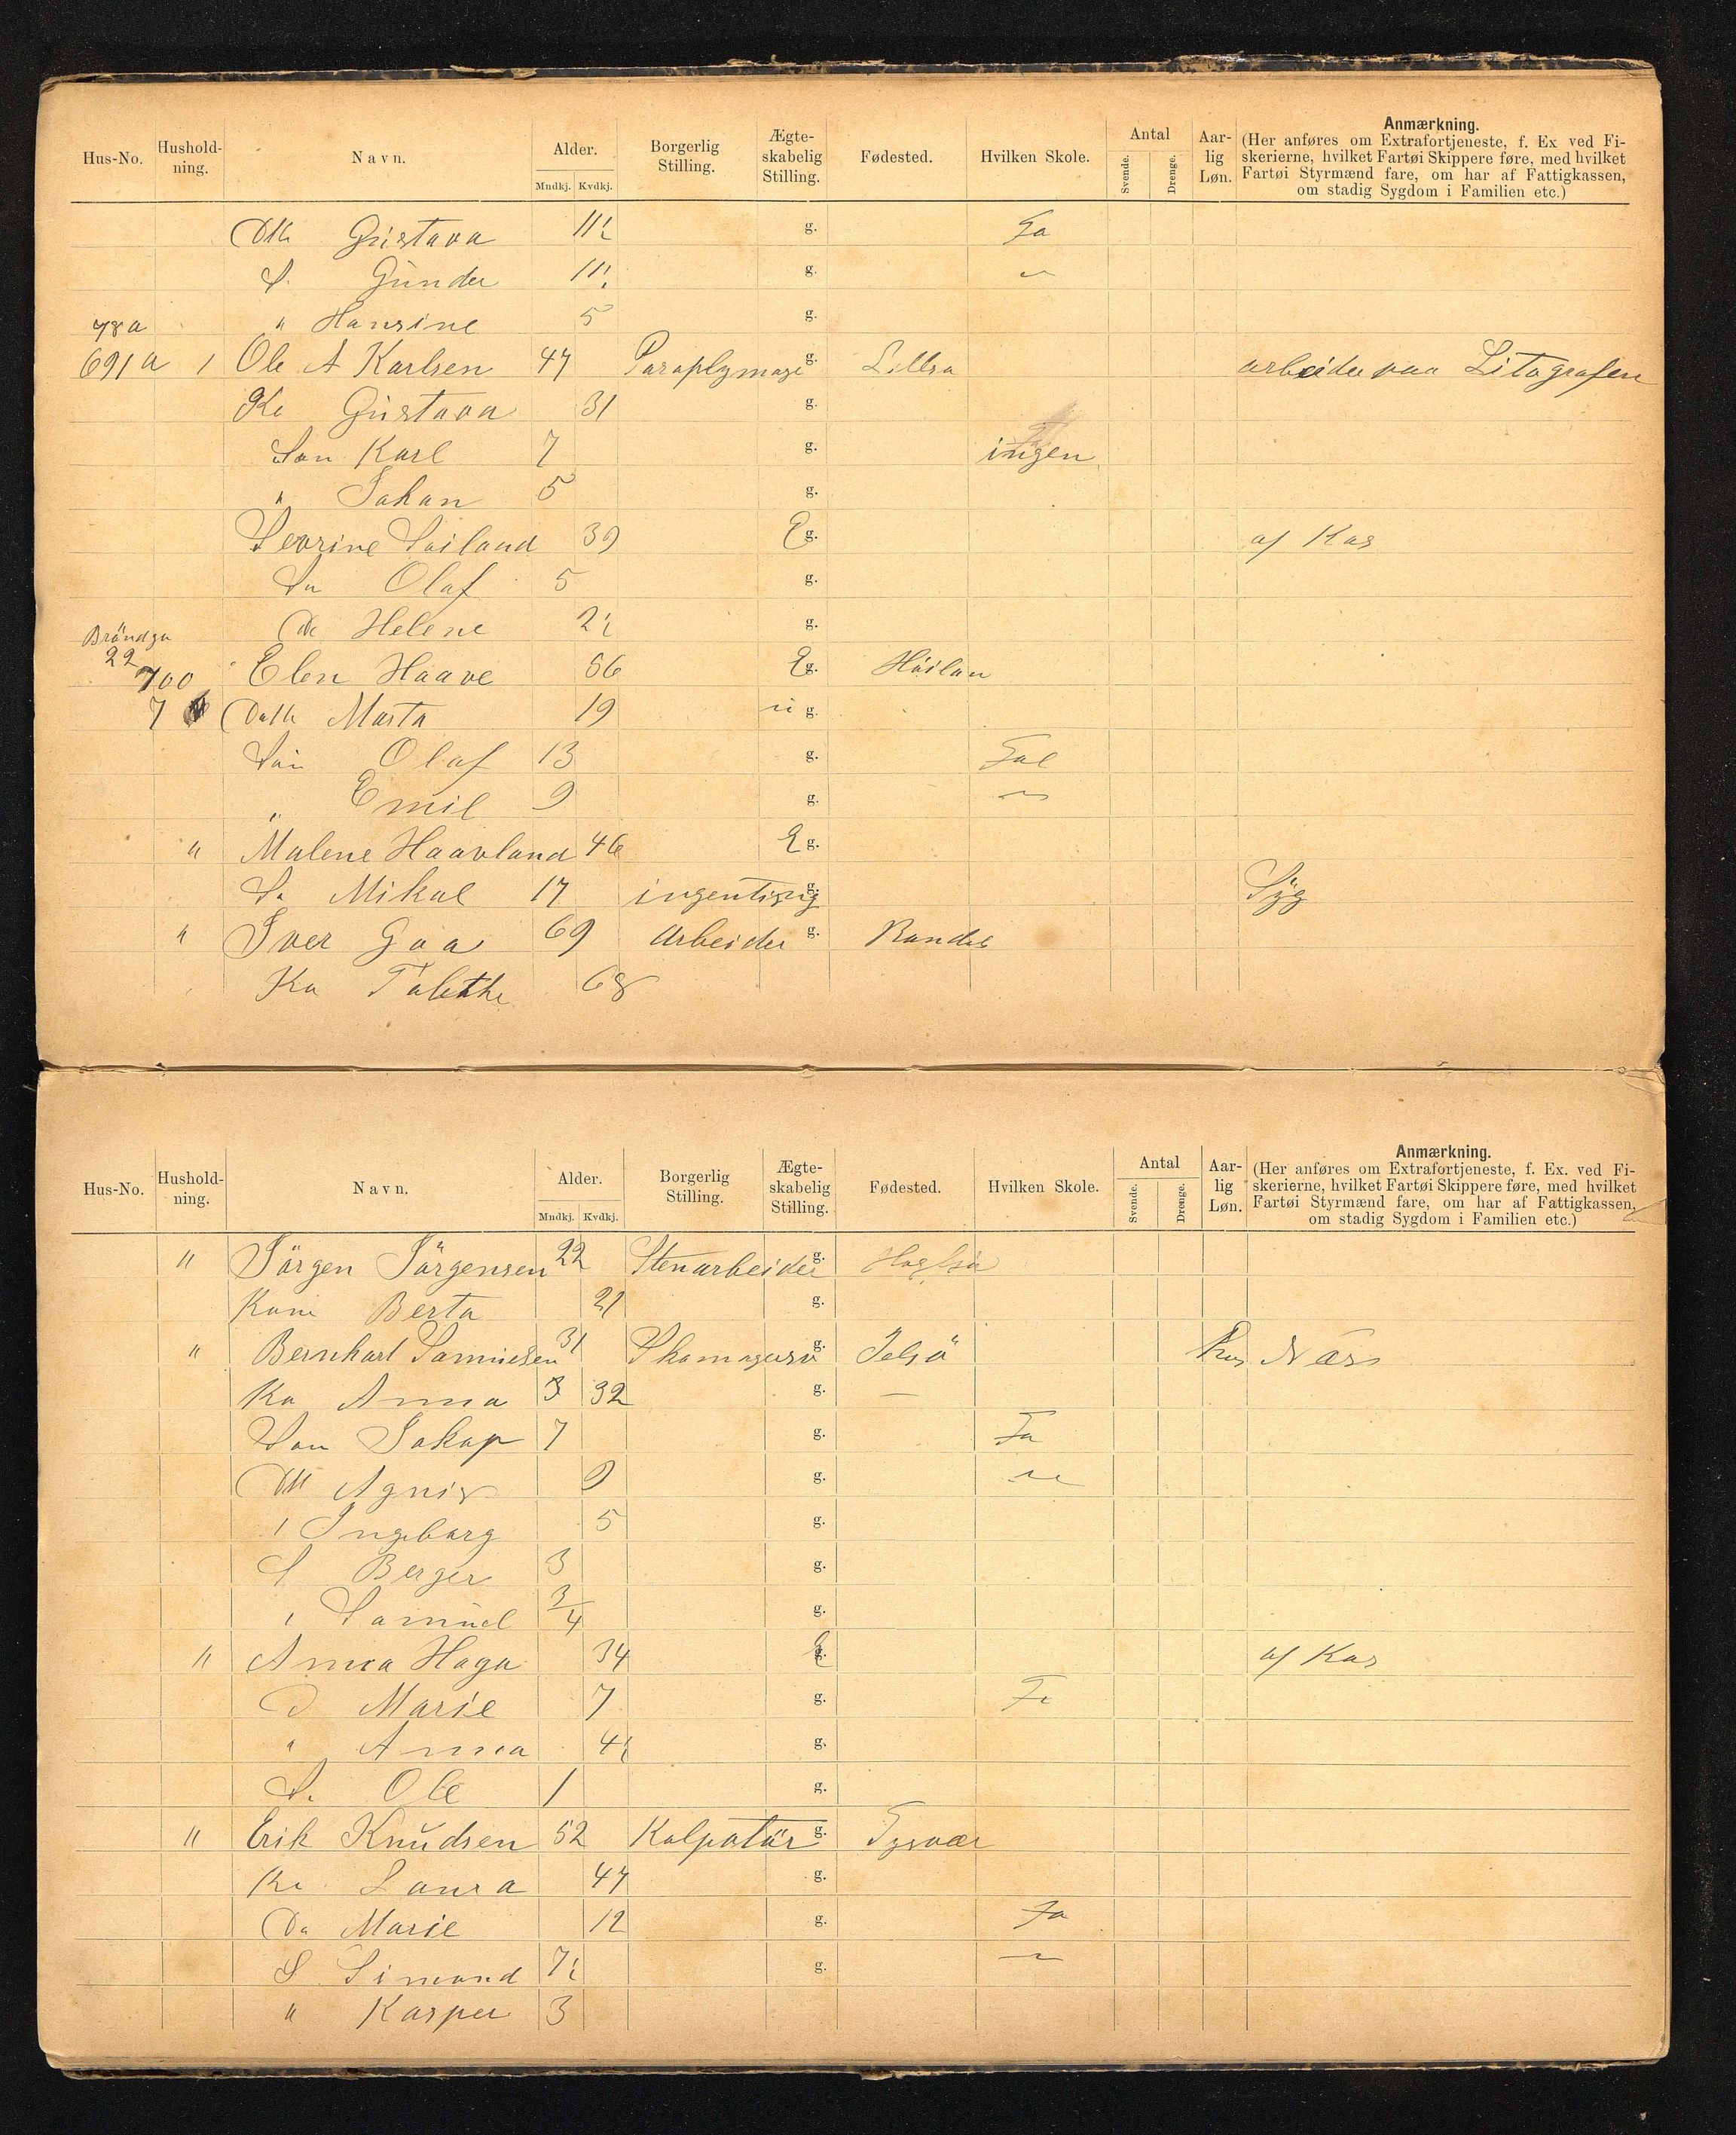 Hus-No. Hushold-ning. Navn. Alder. Mndkj. Kvdkj. Borgerlig Stilling. Ægte-skabelig Stilling. Fødested. Hvilken Skole. Antal Svende. Drenge. Aar-lig Løn. Anmærkning.
(Her anføres om Extrafortjeneste, f. Ex ved Fi-
skerierne, hvilket Fartøi Skippere føre, med hvilket
Fartøi Styrmænd fare, om har af Fattigkassen,
om stadig Sygdom i Familien etc.)
Dtt Gustava 11½ g. Fa
S. Gunder 11½ g. "
" Hansine 5 g.
78a
691a 1 Ole A Karlsen 47 Paraplymage g. Lillsa arbeider paa Litografen
Ko Gustava 31 g.
Søn Karl 7 g. ingen
" Johan 5 g.
Sevrine Soiland 39 E g. af Kas
Sø Olaf 5 g.
Da Helene 2½ g.
Bröndga
22
700 Elen Haave 56 E g. Höilan
7 Datt Marta 19 u g.
Sön Olaf 13 g. Fal
" Emil 9 g. "
" Malene Haavland 46 E g.
Sø Mikal 17 ingenting g. Syg
" Iver Gaa 69 Arbeider g. Randa
Ko Talette 68
Hus-No. Hushold-ning. Navn. Alder. Mndkj. Kvdkj. Borgerlig Stilling. Ægte-skabelig Stilling. Fødested. Hvilken Skole. Antal Svende. Drenge. Aar-lig Løn. Anmærkning.
(Her anføres om Extrafortjeneste, f. Ex. ved Fi-
skerierne, hvilket Fartøi Skippere føre, med hvilket
Fartøi Styrmænd fare, om har af Fattigkassen,
om stadig Sygdom i Familien etc.)
" Jörgen Jörgensen 22 Stenarbeider g.
Kone Berta 21 g.
" Bernhart Samuelsen 31 Skomagersv g. Jelsö Hos Næss
Ko Anna 3 32 g. —
Søn Jakop 7 g. Fa
Dtt Agnis 9 g. "
" Ingeborg 5 g.
S Berger 3 g.
" Samuel 3/4 g.
" Anna Haga 34 E g. af Kas
D Marie 7 g. Fa
" Anna 4½ g.
S. Ole 1 g.
" Erik Knudsen 52 Kolpotör g. Tysvær
Ko Laura 47 g.
Da Marie 12 g. Fa
S Simond 7½ g. "
" Kasper 3